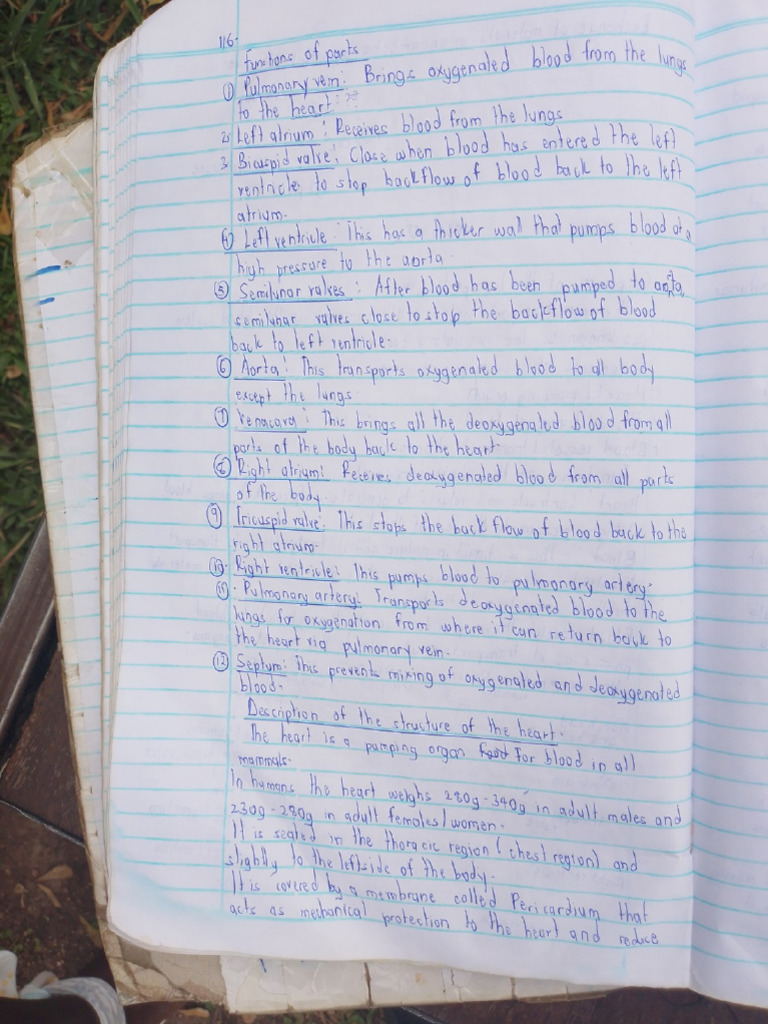 116.
Functions of parts
① Pulmonary vein: Brings oxygenated blood from the lungs
to the heart:
2. Left atrium: Receives blood from the lungs
3. Bicuspid valve: Close when blood has entered the left
ventricle to stop backflow of blood back to the left
atrium.
④ Left ventricle: This has a thicker wall that pumps blood at a
high pressure to the aorta.
⑤ Semilunar valves: After blood has been pumped to aorta,
semilunar valves close to stop the backflow of blood
back to left ventricle.
⑥ Aorta: This transports oxygenated blood to all body
except the lungs.
⑦ Venacava: This brings all the deoxygenated blood from all
parts of the body back to the heart.
⑧ Right atrium: Receives deoxygenated blood from all parts
of the body.
⑨ Tricuspid valve: This stops the back flow of blood back to the
right atrium.
⑩ Right ventricle: This pumps blood to pulmonary artery.
⑪ Pulmonary artery: Transports deoxygenated blood to the
lungs for oxygenation from where it can return back to
the heart via pulmonary vein.
⑫ Septum: This prevents mixing of oxygenated and deoxygenated
blood.
Description of the structure of the heart.
The heart is a pumping organ for blood in all
mammals.
In humans the heart weighs 280g-340g in adult males and
230g-280g in adult females/women.
It is seated in the thoracic region (chest region) and
slightly to the leftside of the body.
It is covered by a membrane called Pericardium that
acts as mechanical protection to the heart and reduce